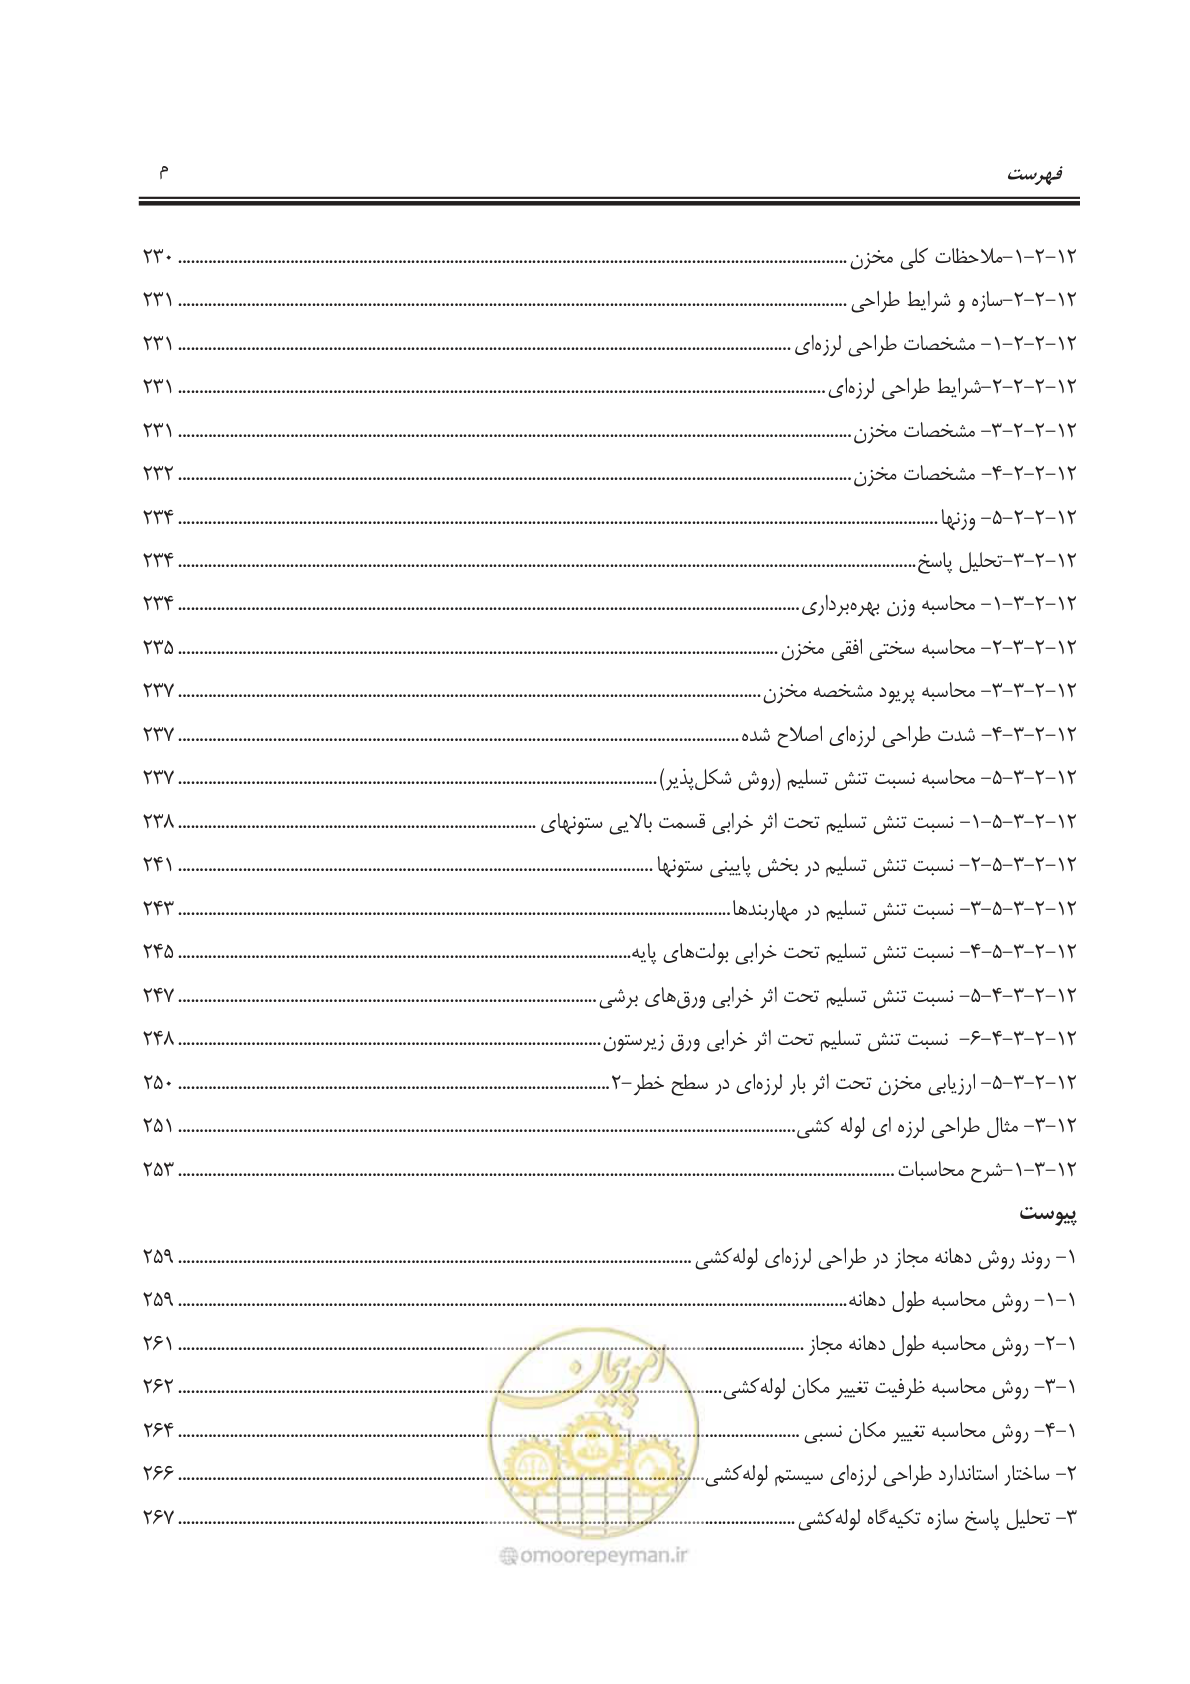 فهرست م
۱۲-۲-۱-ملاحظات کلی مخزن ........ ۲۳۰
۱۲-۲-۲-سازه و شرایط طراحی ........ ۲۳۱
۱۲-۲-۲-۱- مشخصات طراحی لرزه‌ای ........ ۲۳۱
۱۲-۲-۲-۲-شرایط طراحی لرزه‌ای ........ ۲۳۱
۱۲-۲-۲-۳- مشخصات مخزن ........ ۲۳۱
۱۲-۲-۲-۴- مشخصات مخزن ........ ۲۳۲
۱۲-۲-۲-۵- وزنها ........ ۲۳۴
۱۲-۲-۳-تحلیل پاسخ ........ ۲۳۴
۱۲-۲-۳-۱- محاسبه وزن بهره‌برداری ........ ۲۳۴
۱۲-۲-۳-۲- محاسبه سختی افقی مخزن ........ ۲۳۵
۱۲-۲-۳-۳- محاسبه پریود مشخصه مخزن ........ ۲۳۷
۱۲-۲-۳-۴- شدت طراحی لرزه‌ای اصلاح شده ........ ۲۳۷
۱۲-۲-۳-۵- محاسبه نسبت تنش تسلیم (روش شکل‌پذیر) ........ ۲۳۷
۱۲-۲-۳-۵-۱- نسبت تنش تسلیم تحت اثر خرابی قسمت بالایی ستونهای ........ ۲۳۸
۱۲-۲-۳-۵-۲- نسبت تنش تسلیم در بخش پایینی ستونها ........ ۲۴۱
۱۲-۲-۳-۵-۳- نسبت تنش تسلیم در مهاربندها ........ ۲۴۳
۱۲-۲-۳-۵-۴- نسبت تنش تسلیم تحت خرابی بولت‌های پایه ........ ۲۴۵
۱۲-۲-۳-۴-۵- نسبت تنش تسلیم تحت اثر خرابی ورق‌های برشی ........ ۲۴۷
۱۲-۲-۳-۴-۶- نسبت تنش تسلیم تحت اثر خرابی ورق زیرستون ........ ۲۴۸
۱۲-۲-۳-۵- ارزیابی مخزن تحت اثر بار لرزه‌ای در سطح خطر-۲ ........ ۲۵۰
۱۲-۳- مثال طراحی لرزه ای لوله کشی ........ ۲۵۱
۱۲-۳-۱-شرح محاسبات ........ ۲۵۳
پیوست
۱- روند روش دهانه مجاز در طراحی لرزه‌ای لوله‌کشی ........ ۲۵۹
۱-۱- روش محاسبه طول دهانه ........ ۲۵۹
۱-۲- روش محاسبه طول دهانه مجاز ........ ۲۶۱
۱-۳- روش محاسبه ظرفیت تغییر مکان لوله‌کشی ........ ۲۶۲
۱-۴- روش محاسبه تغییر مکان نسبی ........ ۲۶۴
۲- ساختار استاندارد طراحی لرزه‌ای سیستم لوله‌کشی ........ ۲۶۶
۳- تحلیل پاسخ سازه تکیه‌گاه لوله‌کشی ........ ۲۶۷
امور پیمان
@omoorepeyman.ir